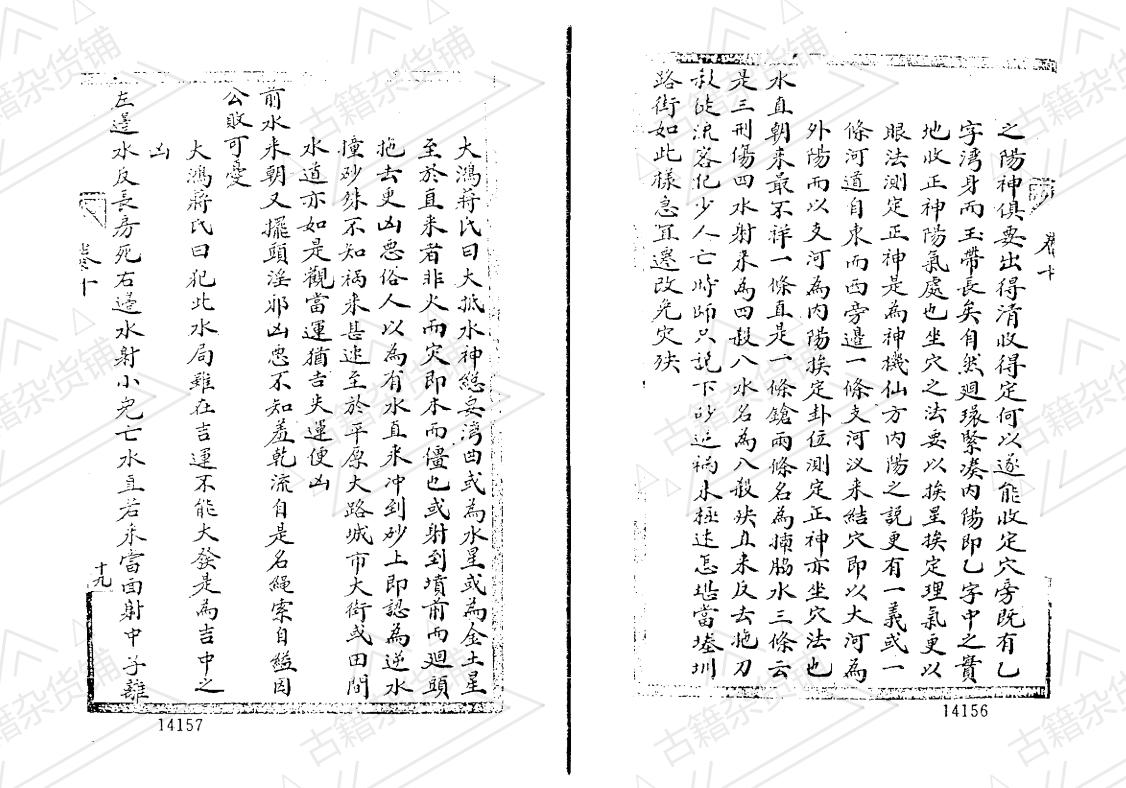 之陽神俱要出得清收得定何以遂能收定穴旁既有乙
字湾身而玉帶長矣自然廻環緊湊内陽即乙字中之實
地收正神陽氣處也坐穴之法要以挨星挨定理氣更以
眼法測定正神是為神機仙方内陽之說更有一義或一
條河道自東而西旁邉一條支河汊来結穴即以大河為
外陽而以支河為内陽挨定卦位測定正神亦坐穴法也
水直朝来最不祥一條直是一條鎗兩條名為揀脇水三條云
是三刑傷四水射来為四殺八水名為八殺殃直来反去拖刀
殺徙流客化少人亡時師只説下砂逆禍来極速怎堪當堘圳
路街如此樣急宜遷改免灾殃
卷十
14156
大鴻蔣氏曰大抵水神總要湾曲或為水星或為金土星
至於直来者非火而灾即木而僵也或射到墳前而廻頭
拖去更凶惡俗人以為有水直来冲到砂上即認為逆水
撞砂殊不知禍来甚速至於平原大路城市大街或田間
水道亦如是觀當運猶吉失運便凶
前水来朝又擺頭淫邪凶惡不知羞乾流自是名繩索自縊因
公敗可憂
大鴻蔣氏曰犯此水局雖在吉運不能大發是為吉中之
凶
左邉水反長房死右邉水射小兒亡水直若来當面射中子離
卷十
十九
14157
古籍杂货铺